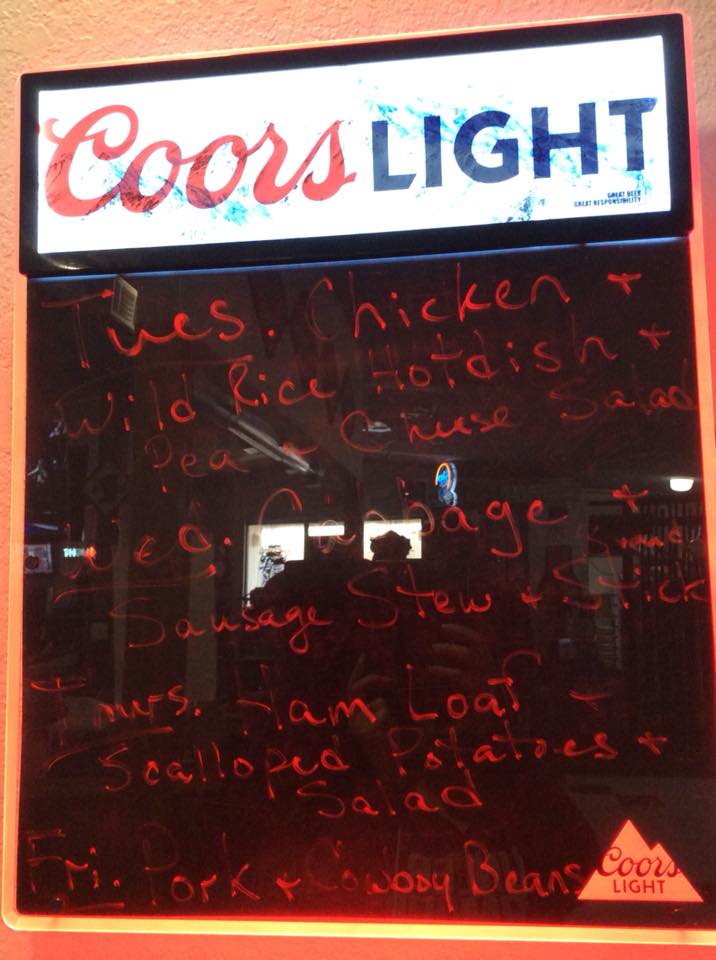 Coors LIGHT
GREAT BEER
GREAT RESPONSIBILITY
Tues. Chicken +
Wild Rice Hotdish +
Pea & Cheese Salad
Wed. Cabbage +
Sausage Stew + Stick
Thurs. Ham Loaf +
Scalloped Potatoes +
Salad
Fri. Pork + Cowboy Beans
Coors
LIGHT